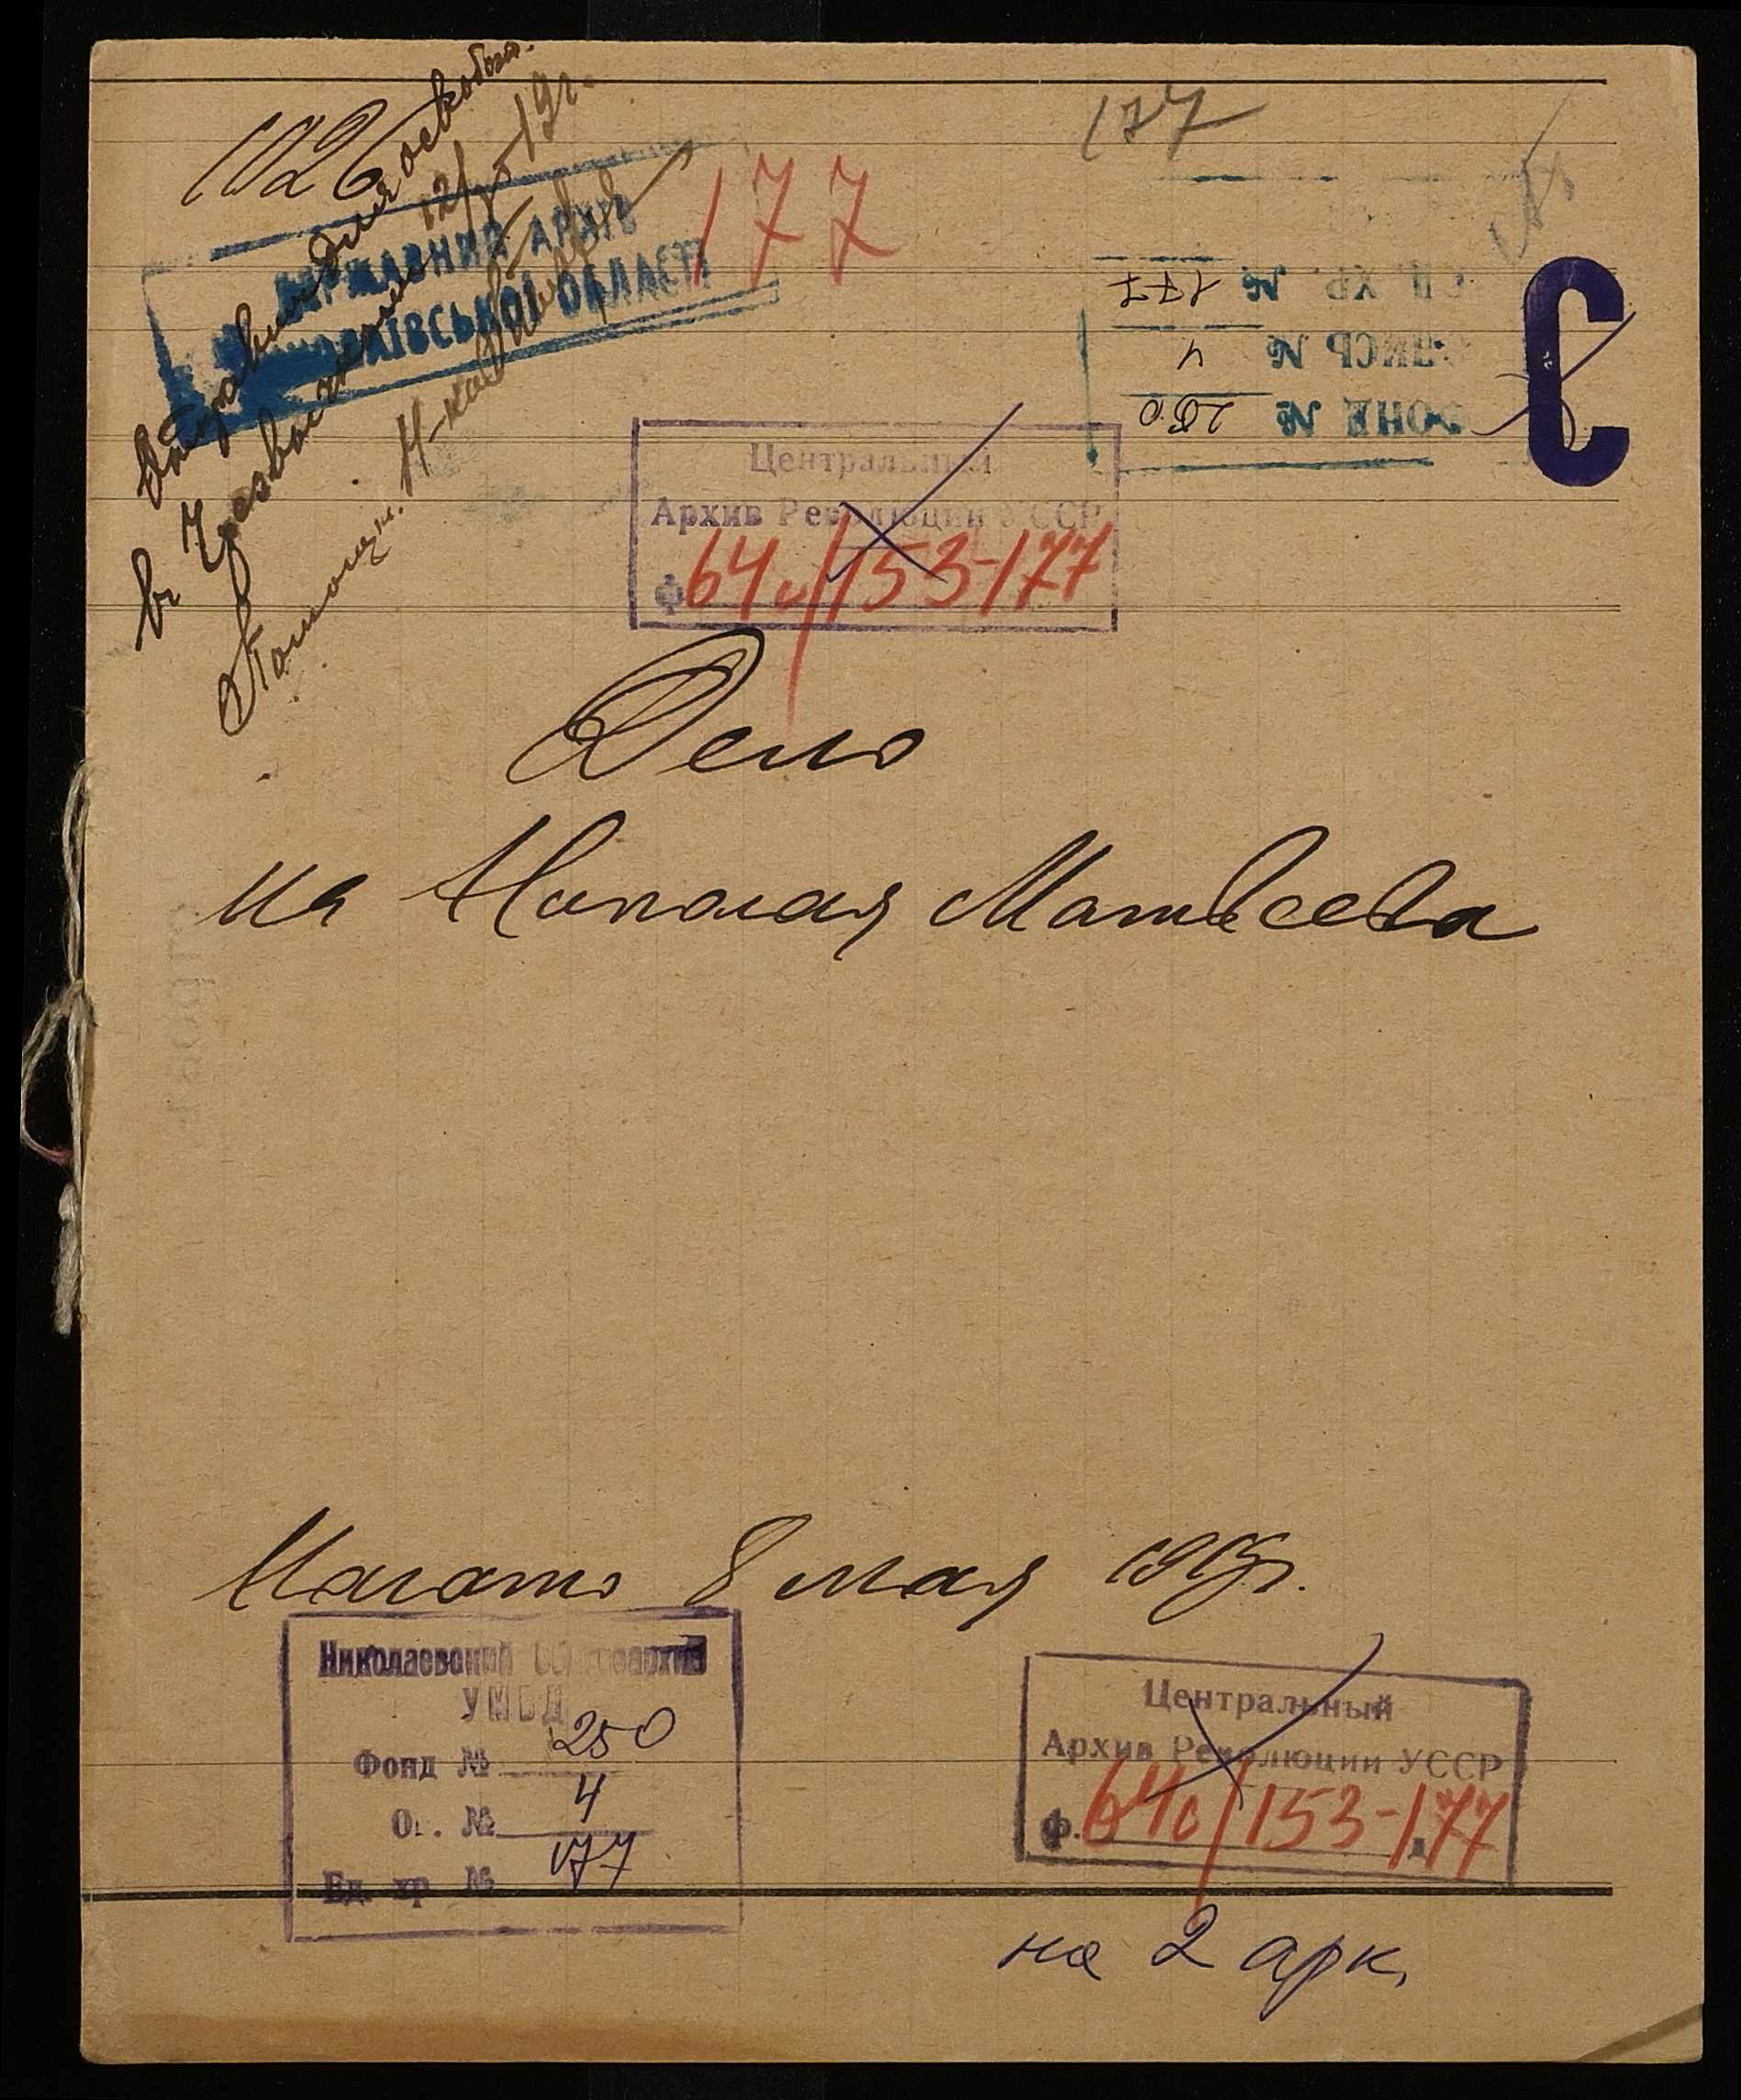 1026
177
177
ДЕРЖАВНИЙ АРХІВ
ОБЛАСТІ
ЕД. ХР. № 177
ОПИСЬ № 4
ФОНД № 250
С
Центральный
Архив Революции УССР
ф. 64с/153-177
Дело
на Николая Матвеева
Начато 8 мая 1919 г.
Николаевский Облгосархив
УМВД
Фонд № 250
Оп. № 4
Ед. хр № 177
Центральный
Архив Революции УССР
ф. 64с/153-177
на 2 арк.